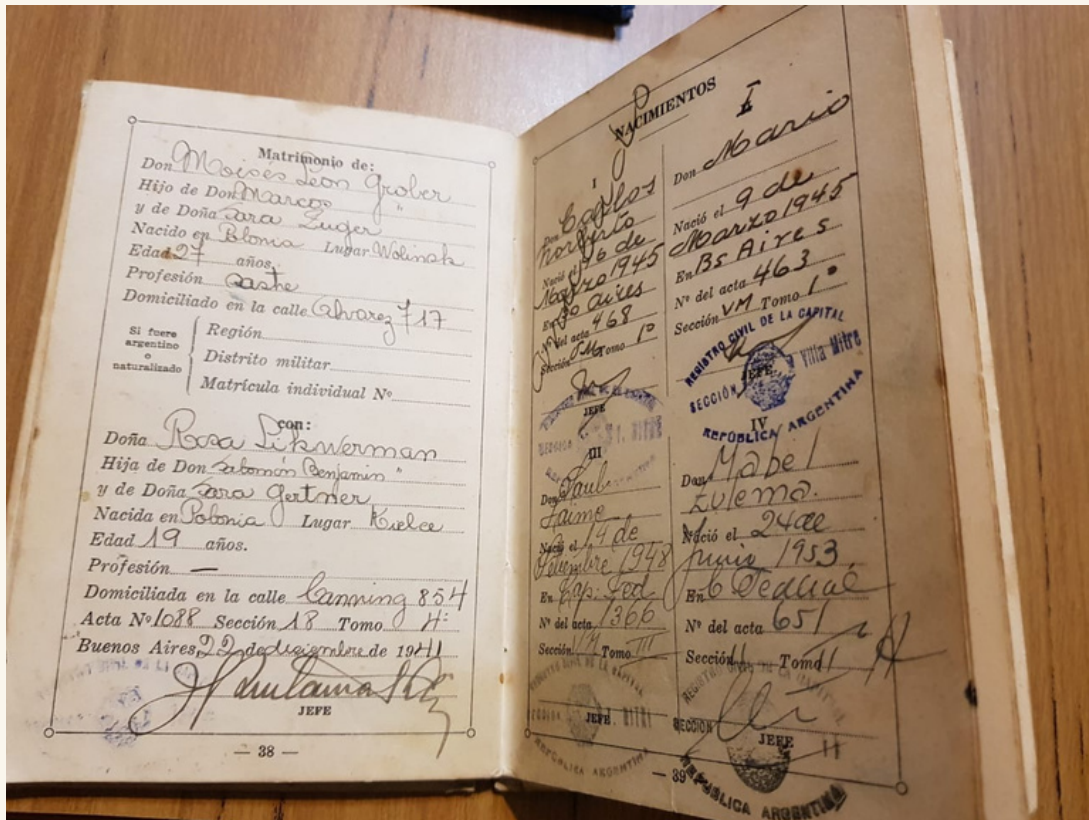 Matrimonio de:
Don Moisés Leon Grober
Hijo de Don Marcos "
y de Doña Sara Luger
Nacido en Polonia Lugar Wolinsk
Edad 27 años.
Profesión Sastre
Domiciliado en la calle Alvarez 717
Si fuere argentino o naturalizado
Región
Distrito militar
Matrícula individual Nº
con:
Doña Rosa Sikwerman
Hija de Don Salomon Benjamin "
y de Doña Sara Gertner
Nacida en Polonia Lugar Kielce
Edad 19 años.
Profesión —
Domiciliada en la calle Canning 854
Acta Nº 1088 Sección 18 Tomo 4º
Buenos Aires, 22 de diciembre de 1941
JEFE
— 38 —
NACIMIENTOS
I
Don Carlos
Norberto
Nació el 6 de
Marzo 1945
En Bs Aires
Nº del acta 468
Sección VM Tomo 1º
JEFE
Don Mario
Nació el 9 de
Marzo 1945
En Bs Aires
Nº del acta 463
Sección VM Tomo 1º
JEFE
REGISTRO CIVIL DE LA CAPITAL
SECCIÓN Villa Mitre
REPÚBLICA ARGENTINA
III
Don Saul
Jaime
Nació el 14 de
1948
En Cap. Fed
Nº del acta 1366
Sección VM Tomo III
JEFE
REPÚBLICA ARGENTINA
IV
Don Mabel
Zulema.
Nació el 24 de
Junio 1953
En C Federal
Nº del acta 651
Sección Tomo II
JEFE
REGISTRO CIVIL DE LA CAPITAL
SECCIÓN
REPÚBLICA ARGENTINA
— 39